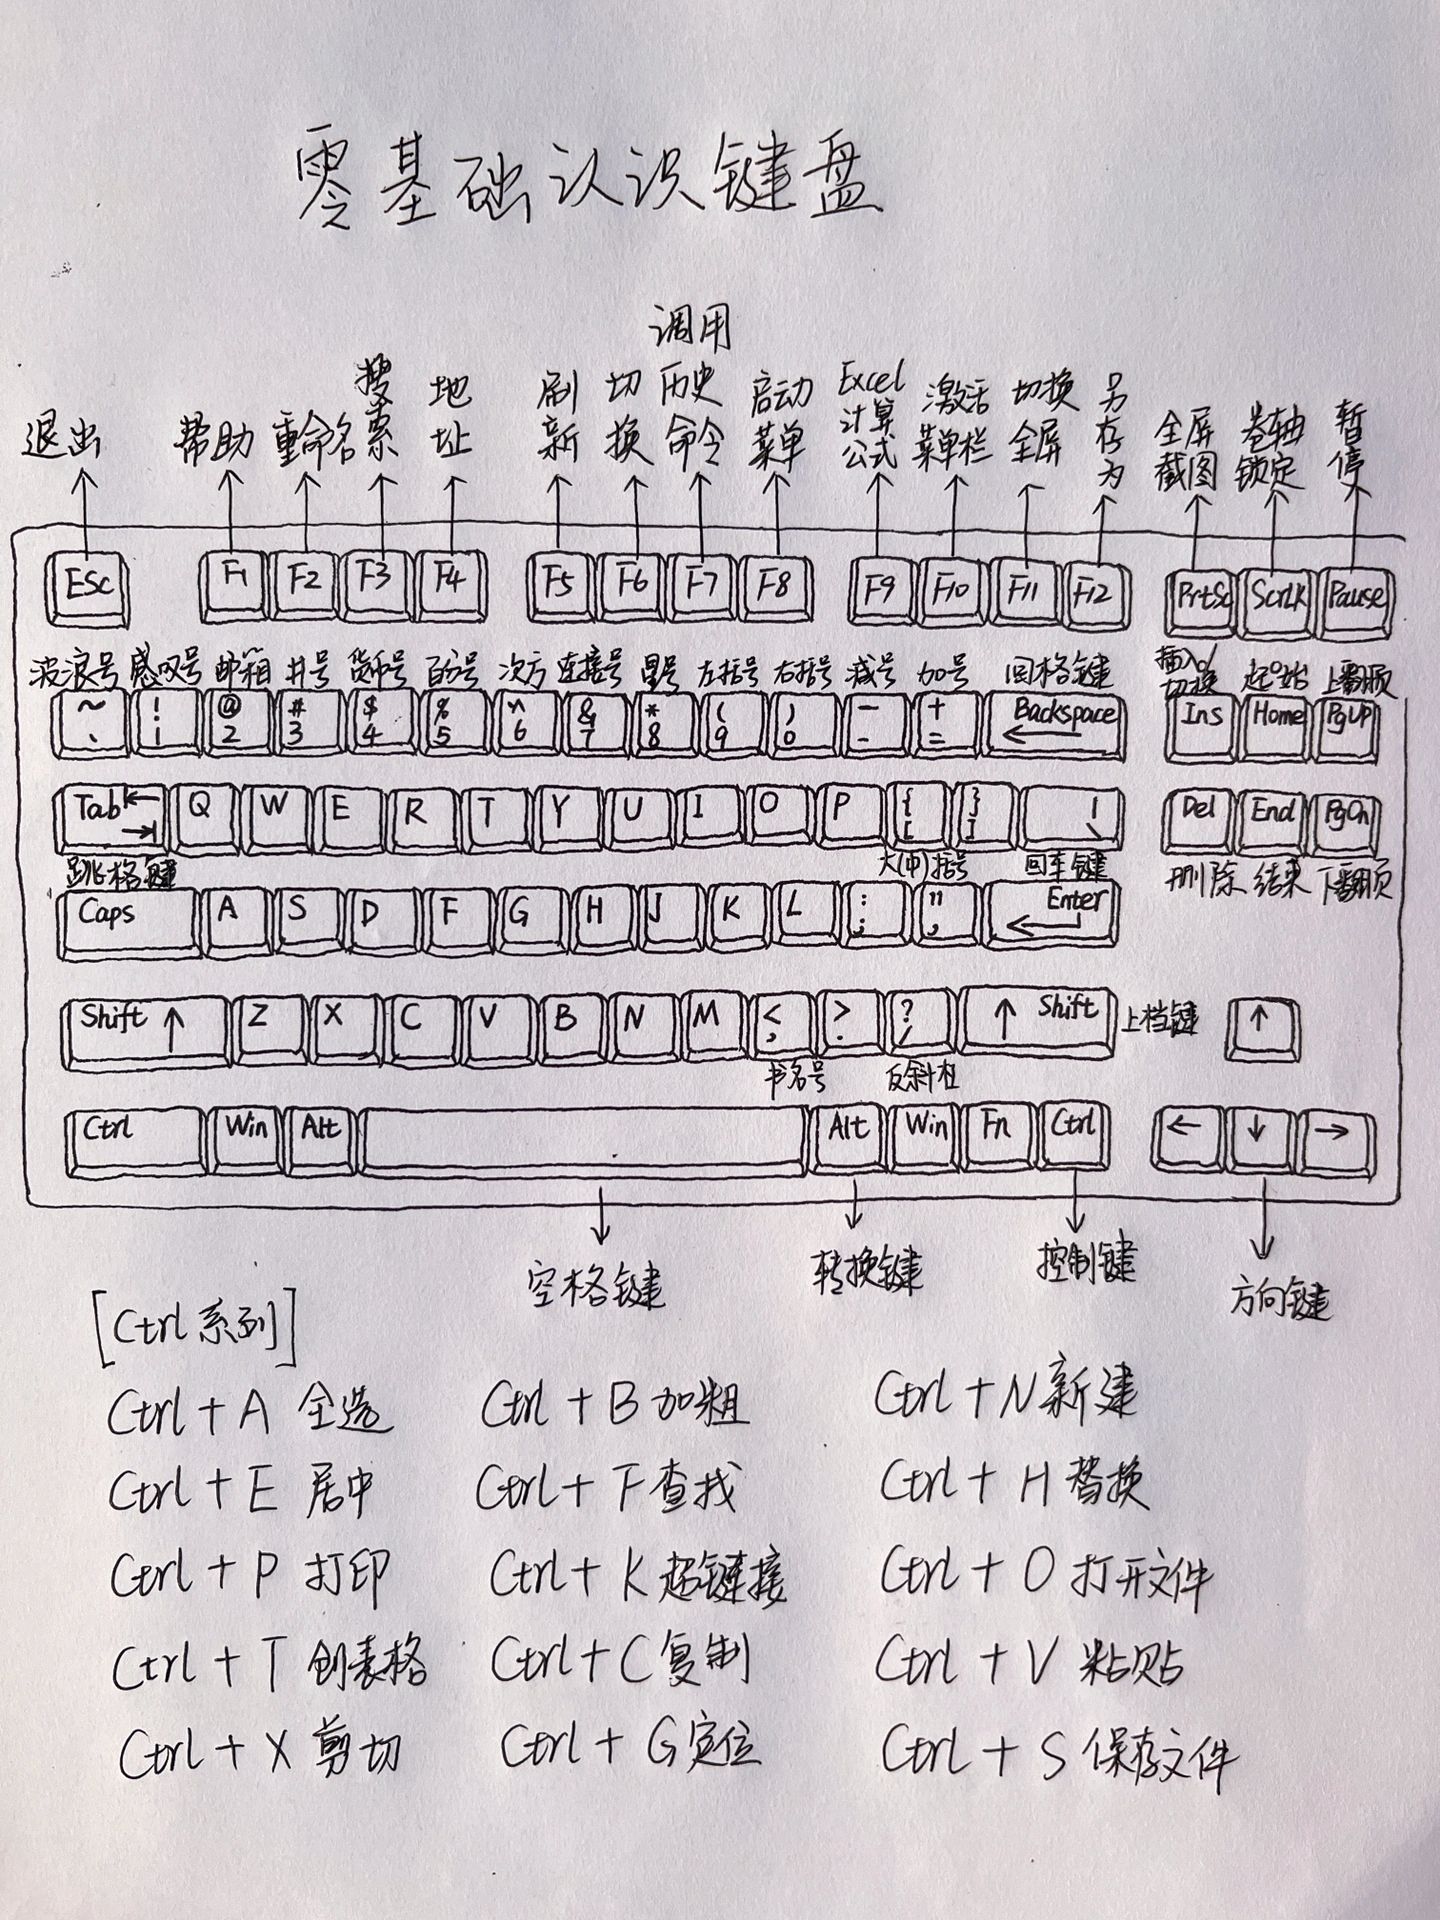 零基础认识键盘
退出 帮助 重命名 搜索 地址 刷新 切换 调用历史命令 启动菜单 Excel计算公式 激活菜单栏 切换全屏 另存为 全屏截图 卷轴锁定 暂停
Esc F1 F2 F3 F4 F5 F6 F7 F8 F9 F10 F11 F12 PrtSc ScrLK Pause
波浪号 感叹号 邮箱 井号 货币号 百分号 次方 连接号 星号 左括号 右括号 减号 加号 回格键 插入/切换 起始 上翻页
~ ! @ # $ % ^ & * ( ) - + Backspace Ins Home PgUP
、 1 2 3 4 5 6 7 8 9 0 - = ←
Tab Q W E R T Y U I O P { } | Del End PgDn
[ ] \
跳格键 大(中)括号 回车键 删除 结束 下翻页
Caps A S D F G H J K L : " Enter
; , ←
Shift ↑ Z X C V B N M < > ? ↑ Shift 上档键 ↑
, . /
书名号 反斜杠
Ctrl Win Alt Alt Win Fn Ctrl ← ↓ →
空格键 转换键 控制键 方向键
[Ctrl系列]
Ctrl + A 全选 Ctrl + B 加粗 Ctrl + N 新建
Ctrl + E 居中 Ctrl + F 查找 Ctrl + H 替换
Ctrl + P 打印 Ctrl + K 超链接 Ctrl + O 打开文件
Ctrl + T 创表格 Ctrl + C 复制 Ctrl + V 粘贴
Ctrl + X 剪切 Ctrl + G 定位 Ctrl + S 保存文件